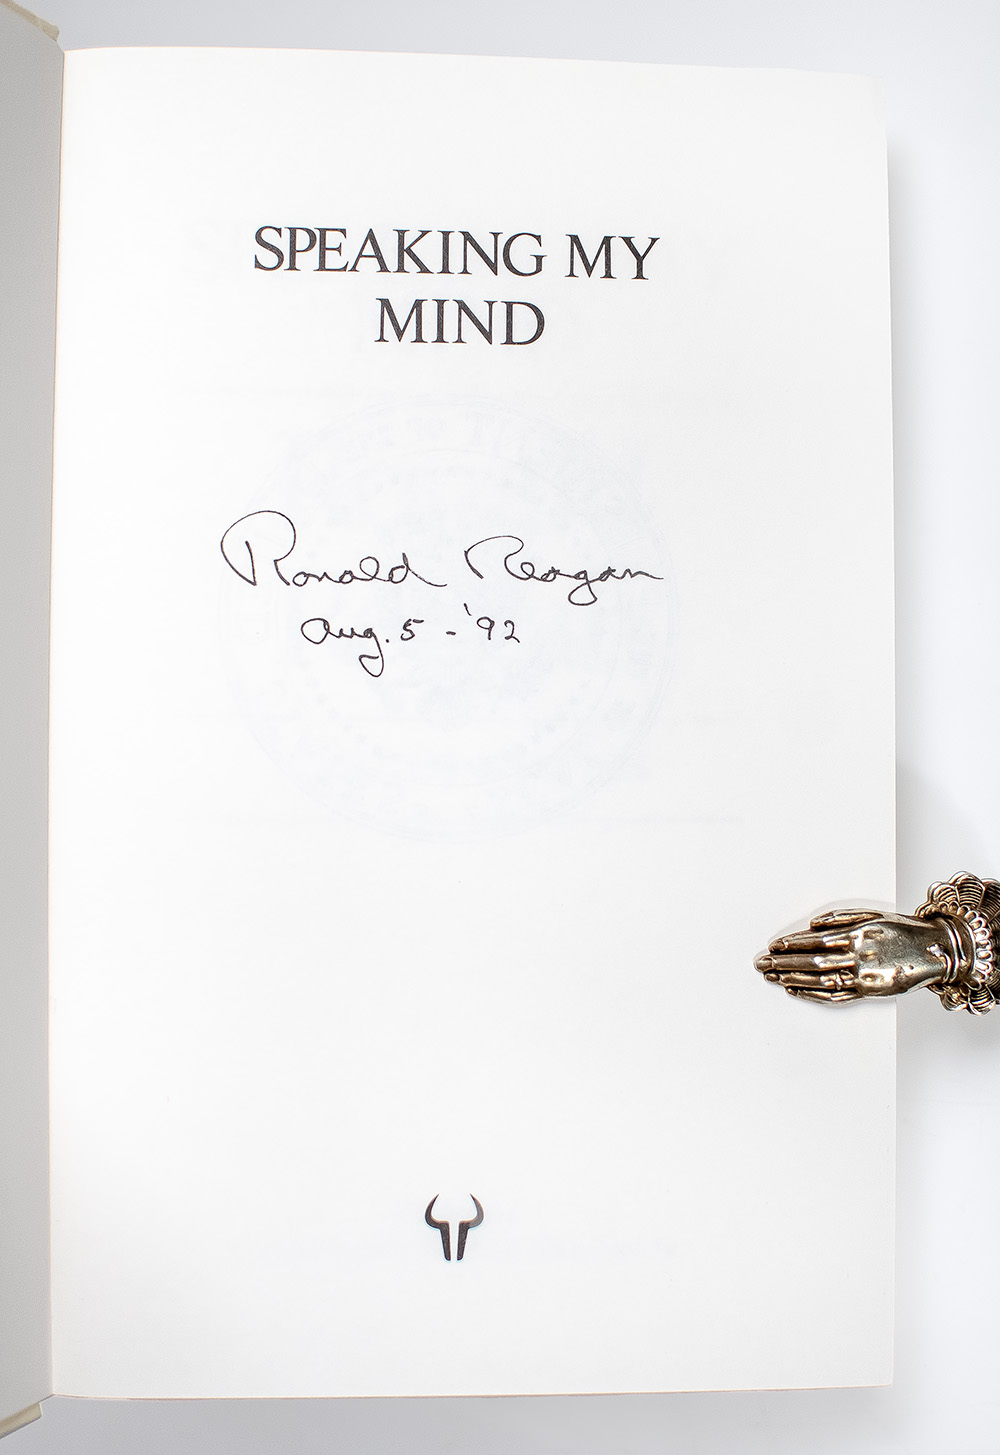 SPEAKING MY
MIND
Ronald Reagan
Aug. 5 - '92